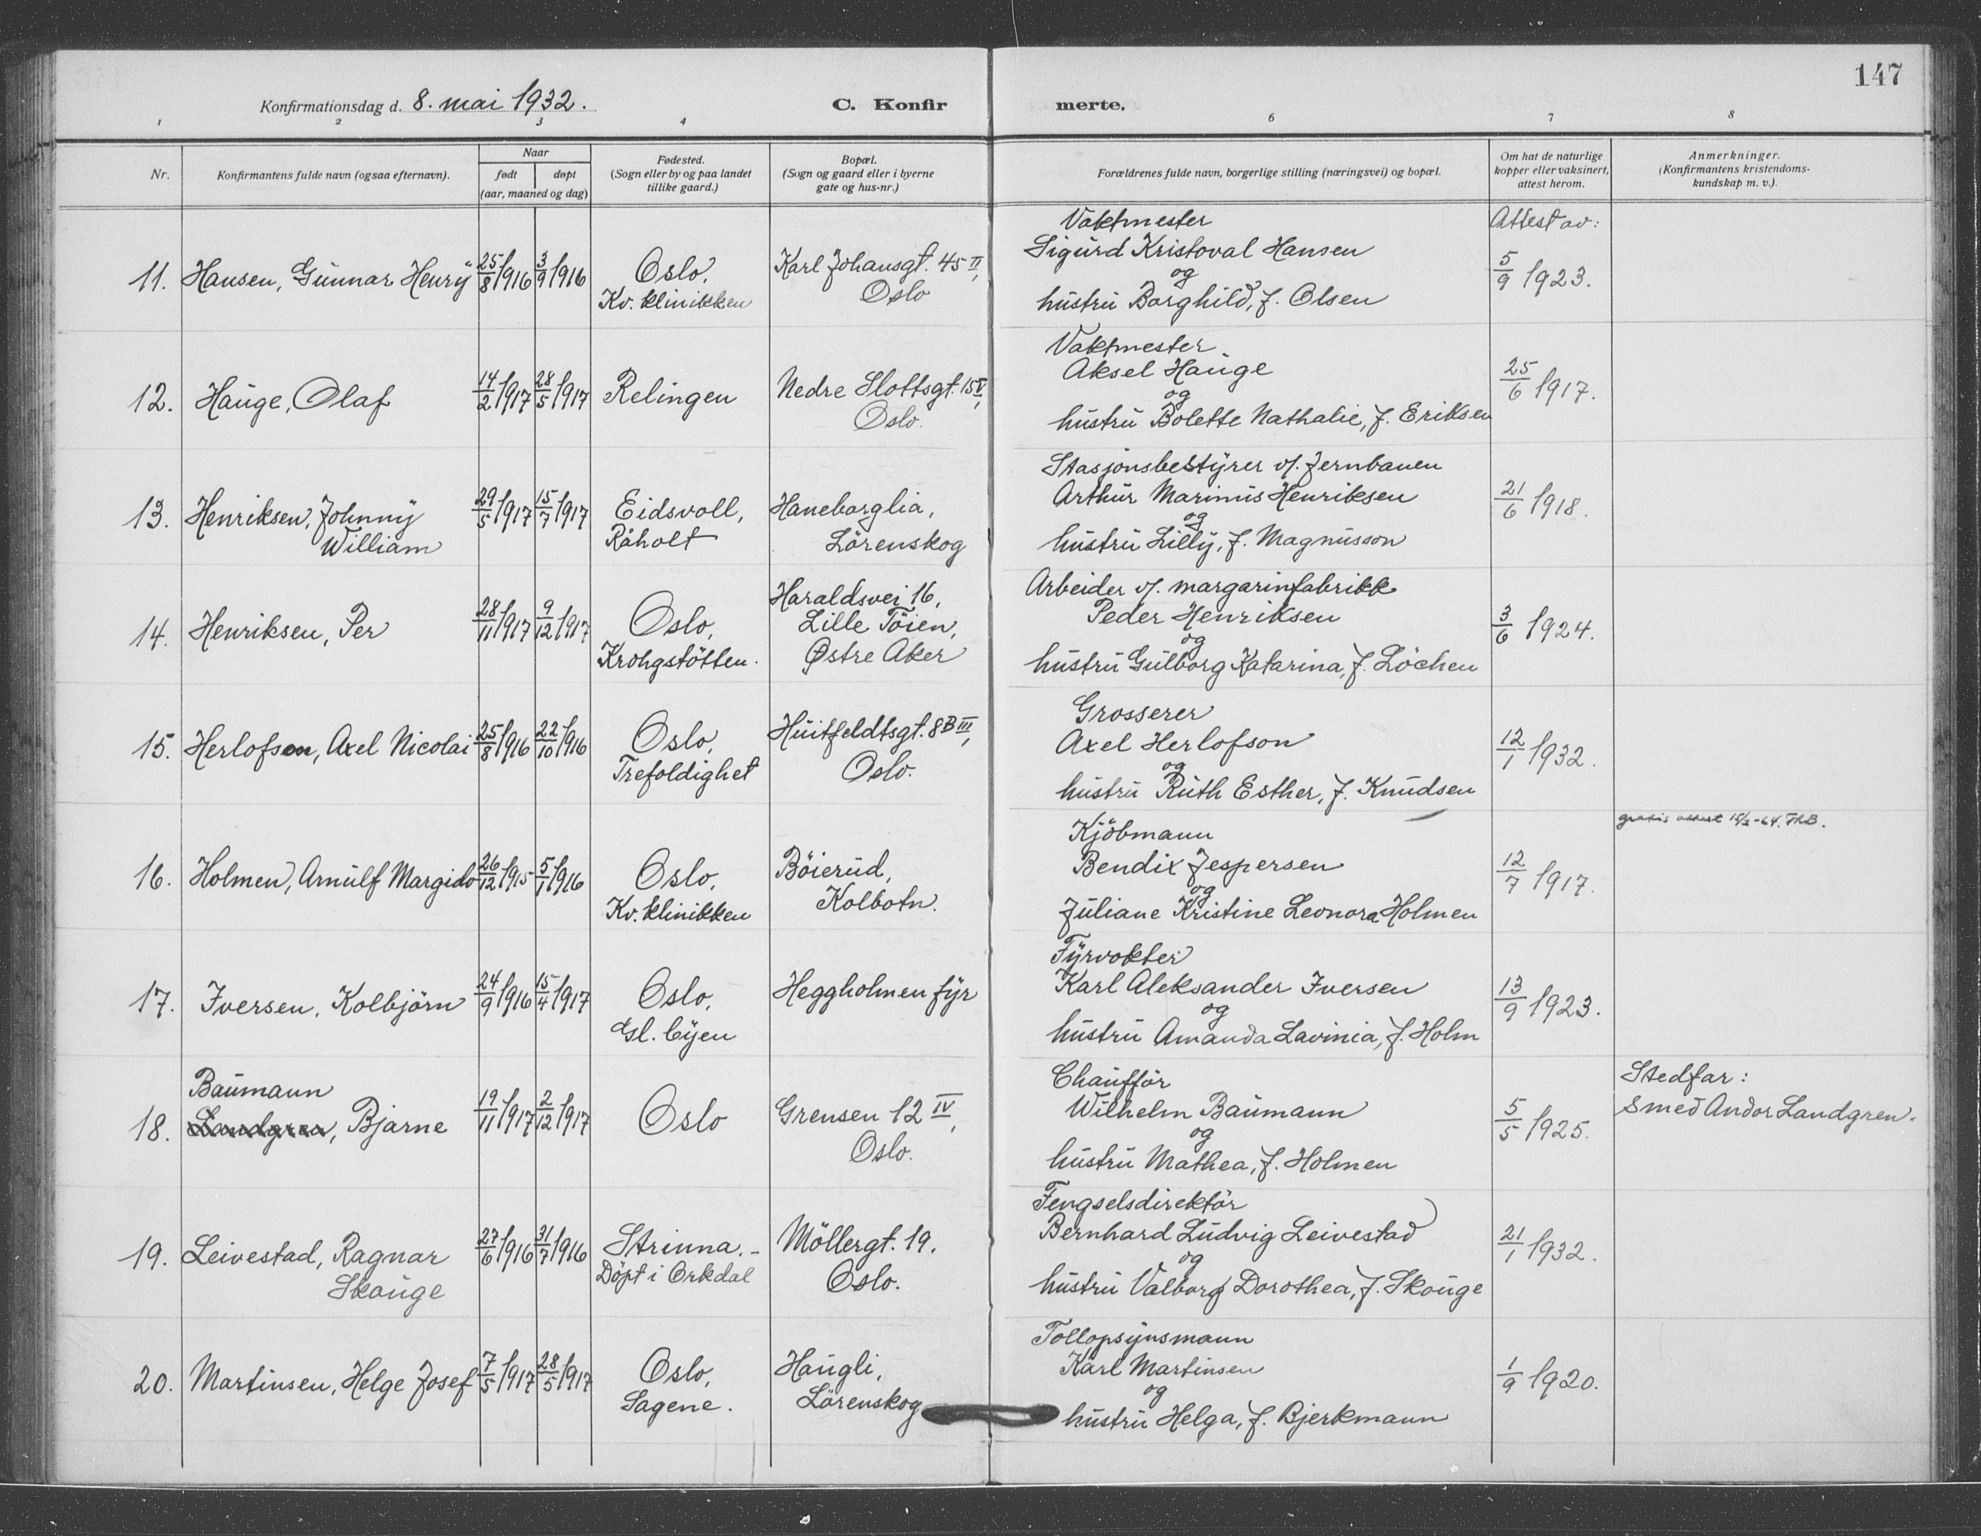 147
Konfirmationsdag d. 8. mai 1932.
C. Konfir
merte.
1 2 3 4 6 7 8
Nr.
Konfirmantens fulde navn (ogsaa efternavn).
Naar
født
døpt
(aar, maaned og dag)
Fødested.
(Sogn eller by og paa landet
tillike gaard.)
Bopæl.
(Sogn og gaard eller i byerne
gate og hus-nr.)
Forældrenes fulde navn, borgerlige stilling (næringsvei) og bopæl.
Om hat de naturlige
kopper eller vaksinert,
attest herom.
Anmerkninger.
(Konfirmantens kristendoms-
kundskap m. v.).
11. Hansen, Gunnar Henry
25/8 1916
3/9 1916
Oslo,
Kv. klinikken
Karl Johansgt. 45 II,
Oslo
Vaktmester
Sigurd Kristoval Hansen
og
hustru Borghild, f. Olsen
Attest av:
5/9 1923.
12. Hauge, Olaf
14/2 1917
28/5 1917
Relingen
Nedre Slottsgt. 15 V,
Oslo.
Vaktmester
Aksel Hauge
og
hustru Bolette Nathalie, f. Eriksen
25/6 1917.
13. Henriksen, Johnny
William
29/5 1917
15/7 1917
Eidsvoll,
Råholt
Haneborglia,
Lörenskog
Stasjonsbestyrer v/. Jernbanen
Arthur Marinus Henriksen
og
hustru Lilly, f. Magnusson
21/6 1918.
14. Henriksen, Per
28/11 1917
9/12 1917
Oslo,
Krohgstötten.
Haraldsvei 16,
Lille Töien,
Østre Aker
Arbeider v/. margarinfabrikk
Peder Henriksen
og
hustru Gulborg Katarina, f. Löchen
3/6 1924.
15. Herlofson, Axel Nicolai
25/8 1916
22/10 1916
Oslo,
Trefoldighet
Huitfeldtsgt. 8B III,
Oslo.
Grosserer
Axel Herlofson
og
hustru Ruth Esther, f. Knudsen
12/1 1932.
16. Holmen, Arnulf Margido
26/12 1915
5/1 1916
Oslo,
Kv. klinikken
Böierud,
Kolbotn.
Kjöbmann
Bendix Jespersen
og
Juliane Kristine Leonora Holmen
12/7 1917.
gratis attest
17. Iversen, Kolbjörn
24/9 1916
15/4 1917
Oslo,
Gl. Byen
Heggholmen fyr
Fyrvokter
Karl Aleksander Iversen
og
hustru Amanda Lavinia, f. Holm
13/9 1923.
Baumann
18. Landgren, Bjarne
19/11 1917
2/12 1917
Oslo
Grensen 12 IV,
Oslo.
Chaufför
Wilhelm Baumann
og
hustru Mathea, f. Holmen
5/5 1925.
Stedfar:
Smed Andor Landgren.
19. Leivestad, Ragnar
Skauge
27/6 1916
31/7 1916
Strinna.-
Döpt i Orkdal
Möllergt. 19.
Oslo.
Fengselsdirektör
Bernhard Ludvig Leivestad
og
hustru Valborg Dorothea, f. Skauge
21/1 1932.
20. Martinsen, Helge Josef
7/5 1917
28/5 1917
Oslo,
Sagene.
Haugli,
Lörenskog
Tollopsynsmann
Karl Martinsen
og
hustru Helga, f. Bjerkmann
1/9 1920.